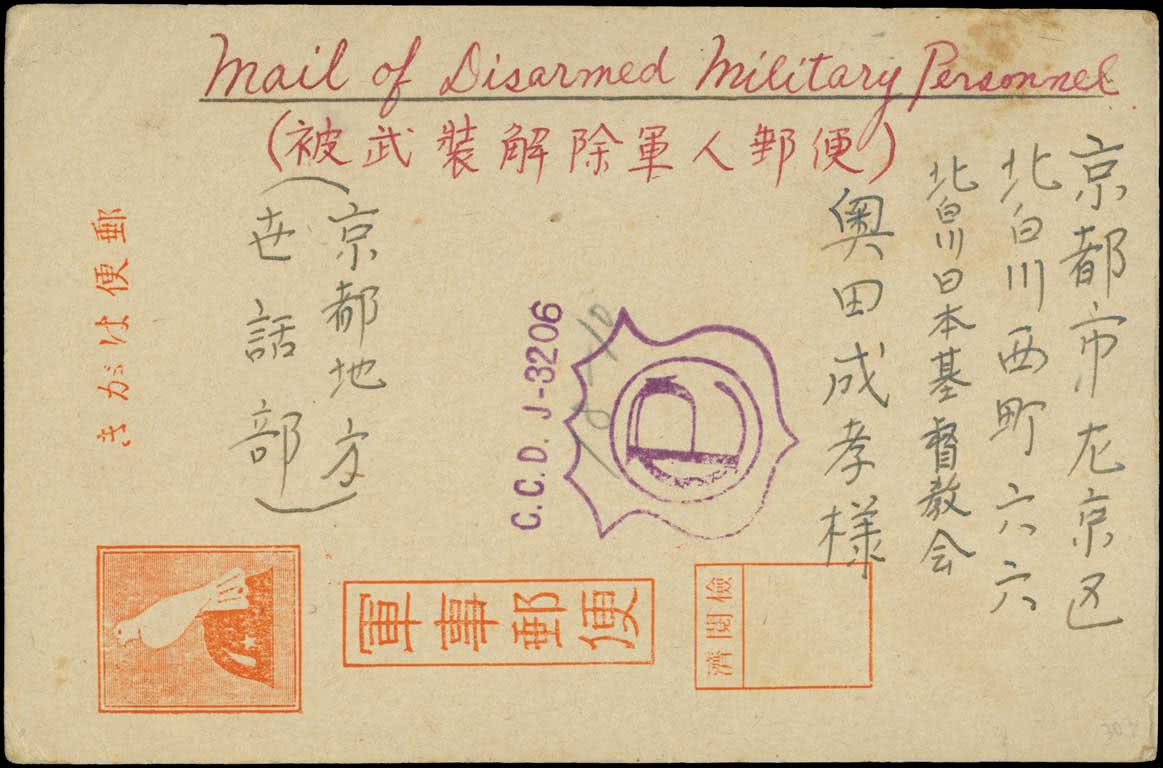 Mail of Disarmed Military Personnel
(被武装解除軍人郵便)
京都市左京区
北白川西町六六
北白川日本基督教会
奥田成孝様
(京都地方
世話部)
郵便はがき
C.C.D. J-3206
軍事郵便
檢閲
濟